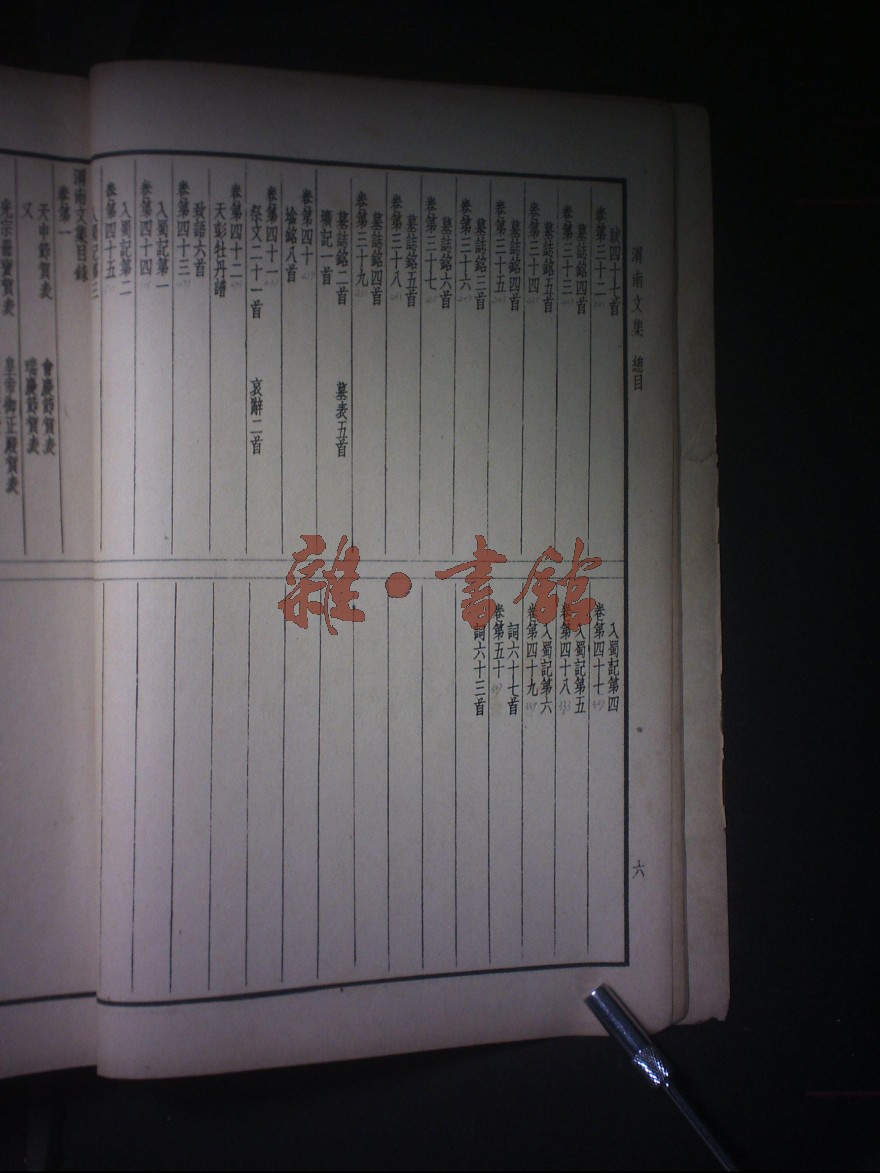 渭南文集 總目
六
跋四十七首
卷第三十二
墓誌銘四首
卷第三十三
墓誌銘五首
卷第三十四
墓誌銘四首
卷第三十五
墓誌銘三首
卷第三十六
墓誌銘六首
卷第三十七
墓誌銘五首
卷第三十八
墓誌銘四首
卷第三十九
墓誌銘二首 墓表五首
壙記一首
卷第四十
塔銘八首
卷第四十一
祭文二十一首 哀辭二首
卷第四十二
天彭牡丹譜
致語六首
卷第四十三
入蜀記第一
卷第四十四
入蜀記第二
卷第四十五
入蜀記第三
入蜀記第四
卷第四十七
入蜀記第五
卷第四十八
入蜀記第六
卷第四十九
詞六十七首
卷第五十
詞六十三首
渭南文集目錄
卷第一
天申節賀表 會慶節賀表
又 瑞慶節賀表
光宗冊寶賀表 皇帝御正殿賀表
雜·書館